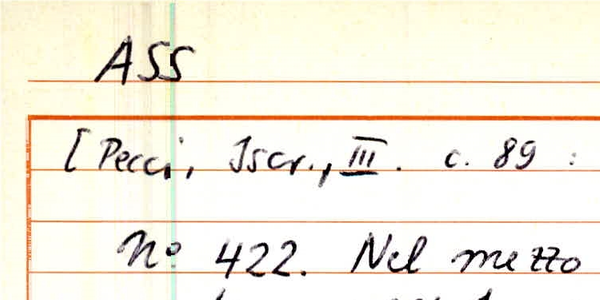 ASS
[Pecci, Iscr., III. c. 89 :
Nº 422. Nel mezzo